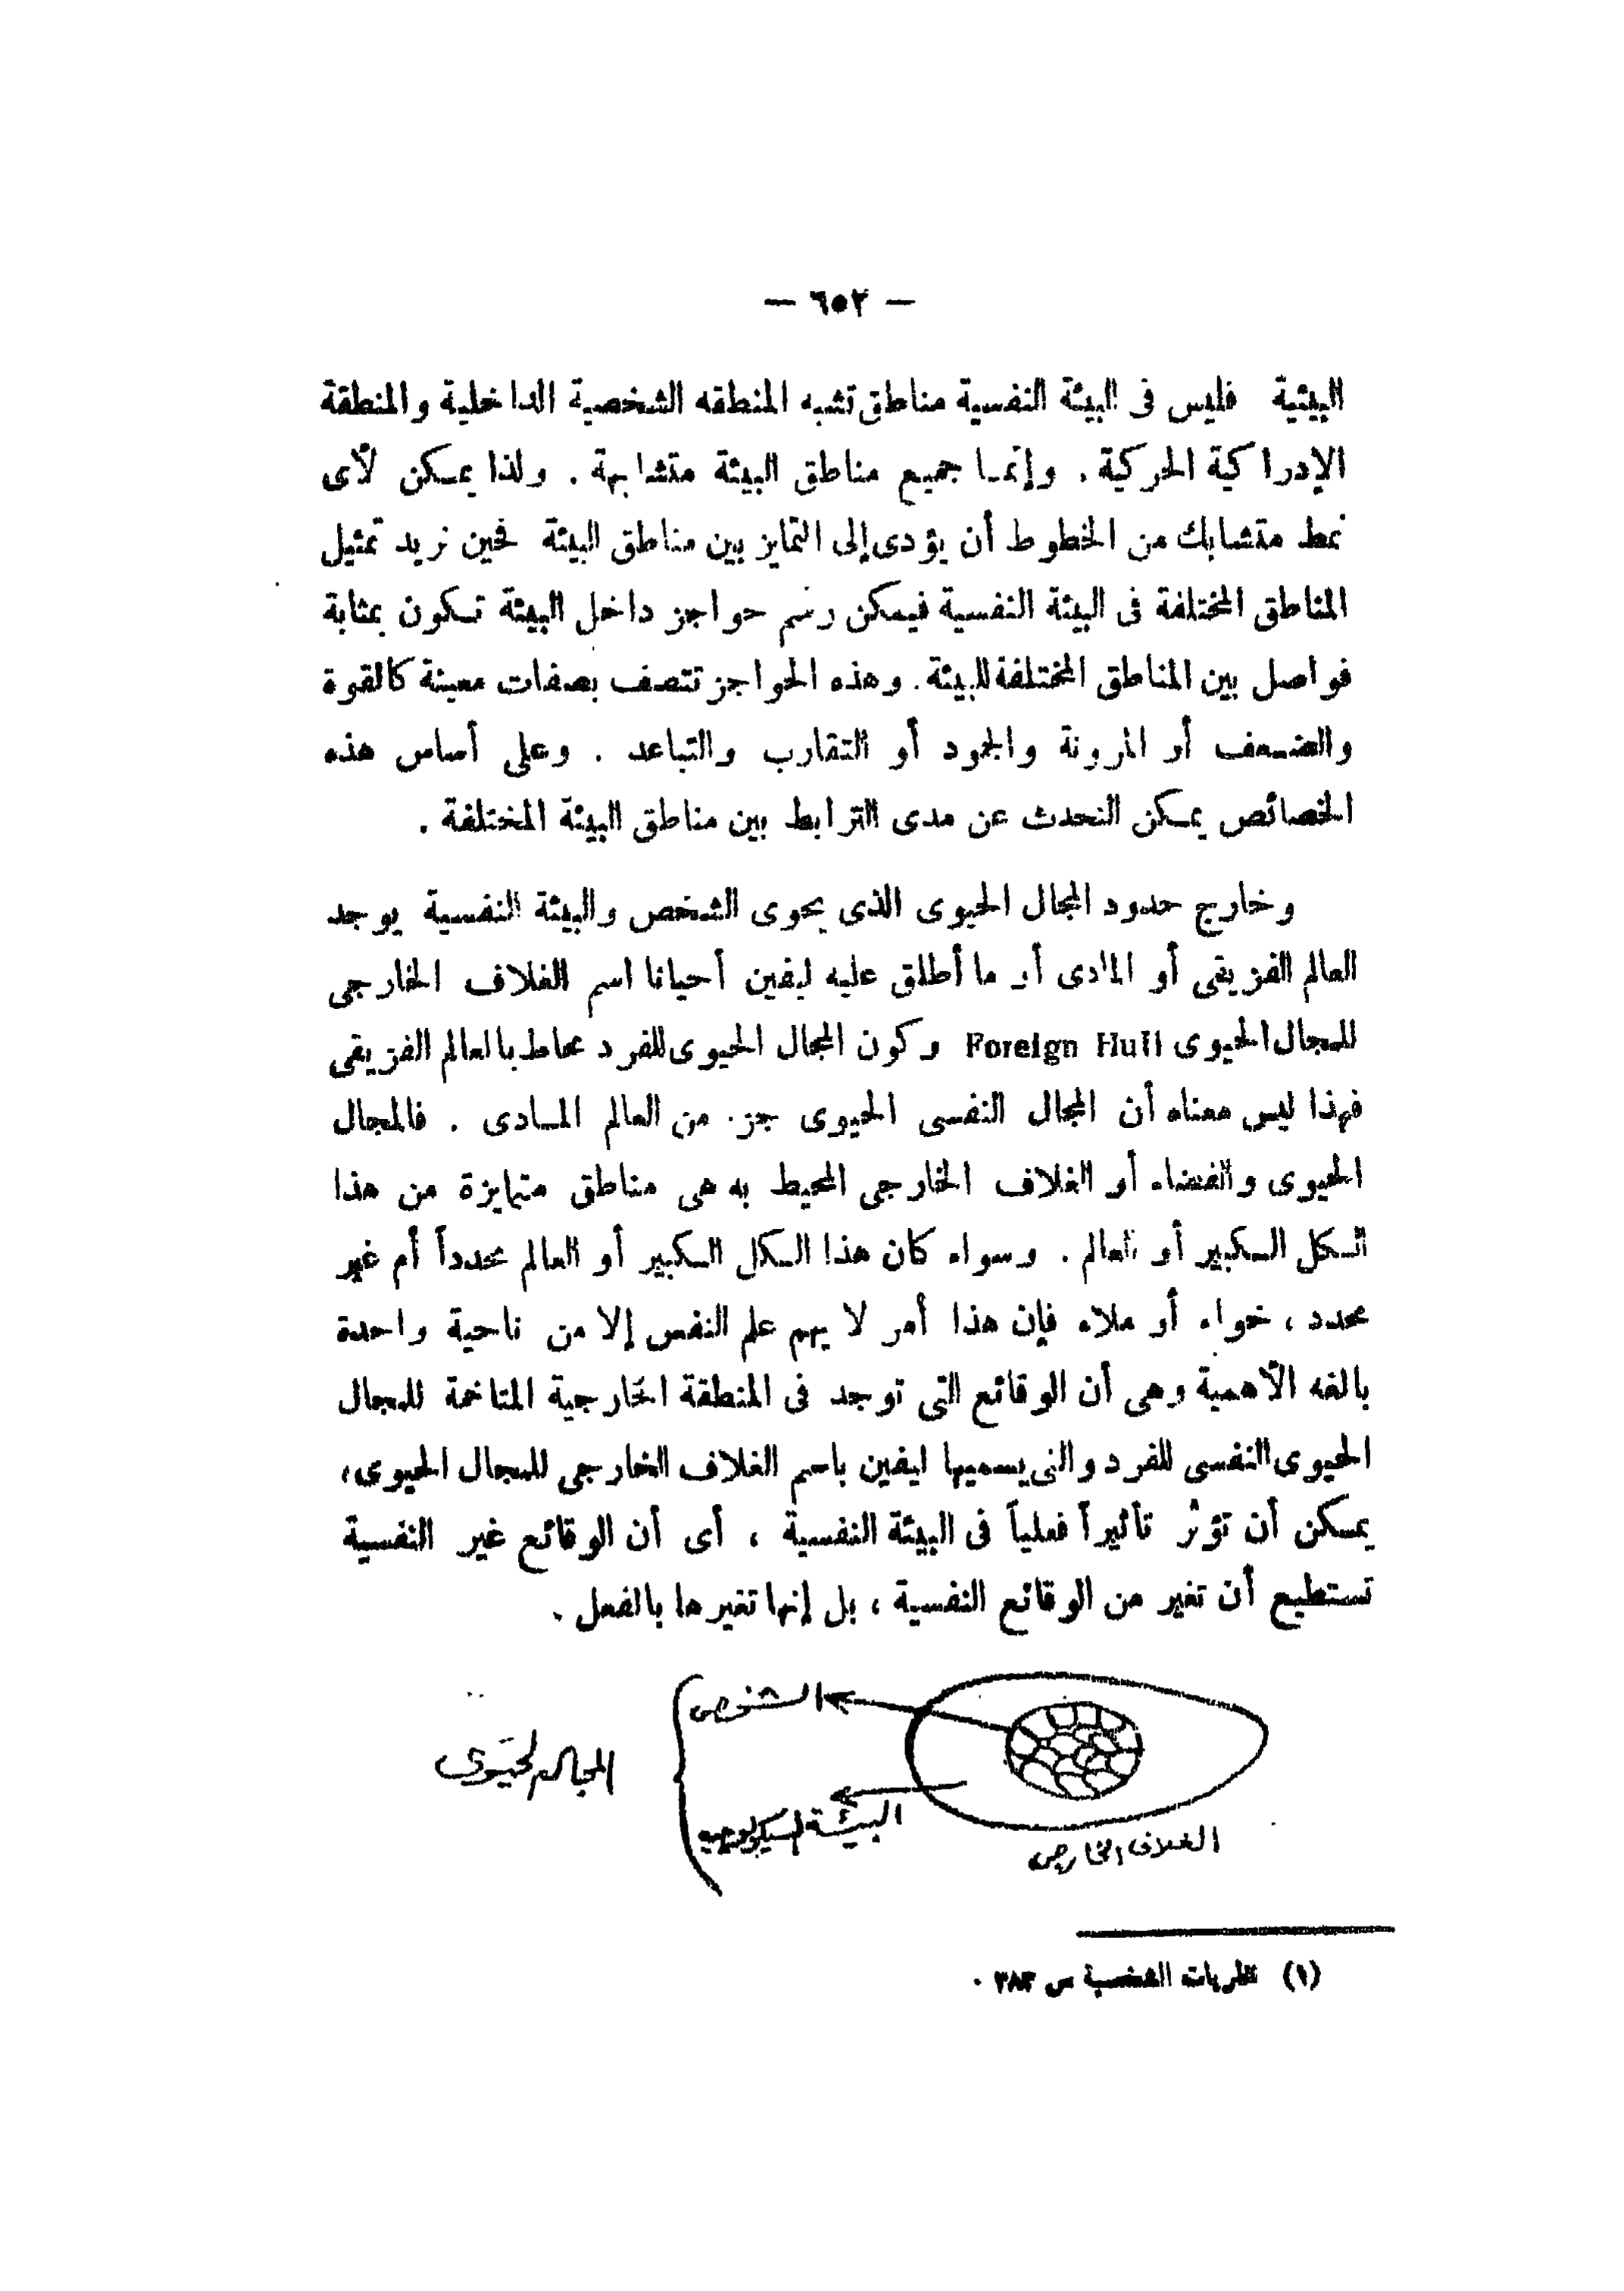 — ٦٥٢ —
البيئية فليس فى البيئة النفسية مناطق تشبه المنطقه الشخصية الداخلية والمنطقة
الإدراكية الحركية . وإنما جميع مناطق البيئة متشابهة . ولذا يمكن لأى
نمط متشابك من الخطوط أن يؤدى إلى التمايز بين مناطق البيئة فحين نريد تمثيل
المناطق المختلفة فى البيئة النفسية فيمكن رسم حواجز داخل البيئة تكون بمثابة
فواصل بين المناطق المختلفة للبيئة . وهذه الحواجز تتصف بصفات معينة كالقوة
والضعف أو المرونة والجمود أو التقارب والتباعد . وعلى أساس هذه
الخصائص يمكن التحدث عن مدى الترابط بين مناطق البيئة المختلفة .
وخارج حدود المجال الحيوى الذى يحوى الشخص والبيئة النفسية يوجد
العالم الفزيقى أو المادى أو ما أطلق عليه ليفين أحيانا اسم الغلاف الخارجى
للمجال الحيوى Foreign Hull وكون المجال الحيوى للفرد محاط بالعالم الفزيقى
فهذا ليس معناه أن المجال النفسى الحيوى جزء من العالم المادى . فالمجال
الحيوى والفضاء أو الغلاف الخارجى المحيط به هى مناطق متمايزة من هذا
الكل الكبير أو العالم . وسواء كان هذا الكل الكبير أو العالم محدداً أم غير
محدد ، خواء أو ملاء فإن هذا أمر لا يهم علم النفس إلا من ناحية واحدة
بالغه الأهمية وهى أن الوقائع التى توجد فى المنطقة الخارجية المتاخمة للمجال
الحيوى النفسى للفرد والتى يسميها ليفين باسم الغلاف الخارجى للمجال الحيوى ،
يمكن أن تؤثر تأثيراً فعلياً فى البيئة النفسية ، أى أن الوقائع غير النفسية
تستطيع أن تغير من الوقائع النفسية ، بل إنها تغيرها بالفعل .
الشخص
المجال الحيوى
البيئة السيكولوجيه
الغلاف الخارجى
(١) نظريات الشخصية س ٣٨٣ .